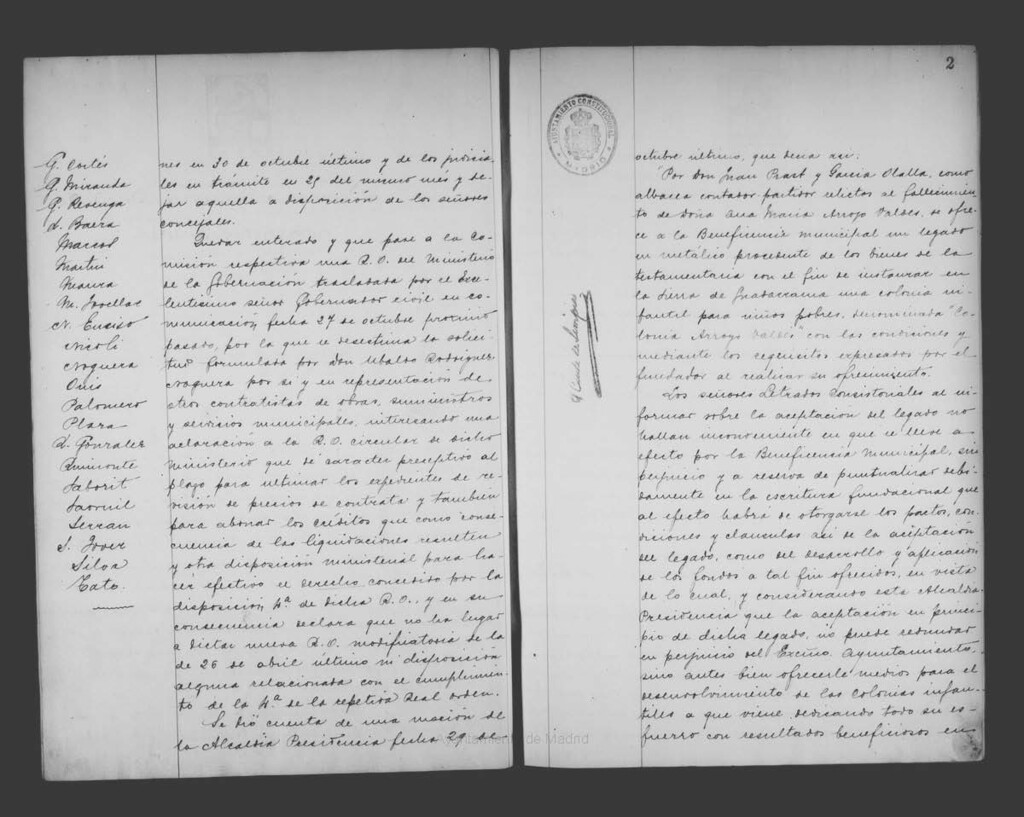 G. Cortés
G. Miranda
G. Revenga
A. Baena
Marcos
Martín
Maura
M. Novellas
N. Enciso
Nicoli
Noguera
Onis
Palomero
Plaza
R. González
Saborit
Saornil
Serran
S. Jover
Silva
Tato.
nes en 30 de octubre último y de los judicia-
les en trámite en 25 del mismo mes y de-
jar aquella a disposición de los señores
concejales.
Quedar enterado y que pase a la Co-
misión respectiva una R. O. del Ministerio
de la Gobernación trasladada por el Exce-
lentísimo señor Gobernador civil en co-
municación fecha 27 de octubre próximo
pasado, por la que se desestima la solici-
tud formulada por Don Ubaldo Rodríguez
Noguera por si y en representación de
otros contratistas de obras, suministros
y servicios municipales, interesando una
aclaración a la R. O. circular de dicho
Ministerio que dé caracter preceptivo al
plazo para ultimar los expedientes de re-
visión de precios de contrata y tambien
para abonar los créditos que como conse-
cuencia de las liquidaciones resulten
y otra disposición ministerial para ha-
cer efectivo el derecho concedido por la
disposición 4ª de dicha R. O., y en su
consecuencia declara que no ha lugar
a dictar nueva R. O. modificatoria de la
de 26 de abril último ni disposición
alguna relacionada con el cumplimien-
to de la 4ª de la repetida Real orden.
Se dió cuenta de una moción de
la Alcaldía Presidencia fecha 29 de
Ayuntamiento de Madrid
2
AYUNTAMIENTO CONSTITUCIONAL
MADRID
El Conde de Limpias
octubre último, que decía así:
"Por Don Juan Prast y García Olalla, como
albacea contador partidor relictos al fallecimien-
to de Doña Ana María Arroyo Valdés, se ofre-
ce a la Beneficencia municipal un legado
en metálico procedente de los bienes de la
testamentaría con el fin de instaurar en
la Sierra de Guadarrama una colonia in-
fantil para niños pobres, denominada "Co-
lonia Arroyo Valdés" con las condiciones y
mediante los requisitos expresados por el
fundador al realizar su ofrecimiento.
Los señores Letrados Consistoriales al in-
formar sobre la aceptación del legado no
hallan inconveniente en que se lleve a
efecto por la Beneficencia Municipal, sin
perjuicio y a reserva de puntualizar debi-
damente en la escritura fundacional que
al efecto habrá de otorgarse los pactos, con-
diciones y clausulas así de la aceptación
del legado, como del desarrollo y aplicación
de los fondos a tal fin ofrecidos, en vista
de lo cual, y considerando esta Alcaldía
Presidencia que la aceptación en princi-
pio de dicho legado, no puede redundar
en perjuicio del Excmo. Ayuntamiento,
sino antes bien ofrecerle medios para el
desenvolvimiento de las colonias infan-
tiles a que viene dedicando todo su es-
fuerzo con resultados beneficiosos en